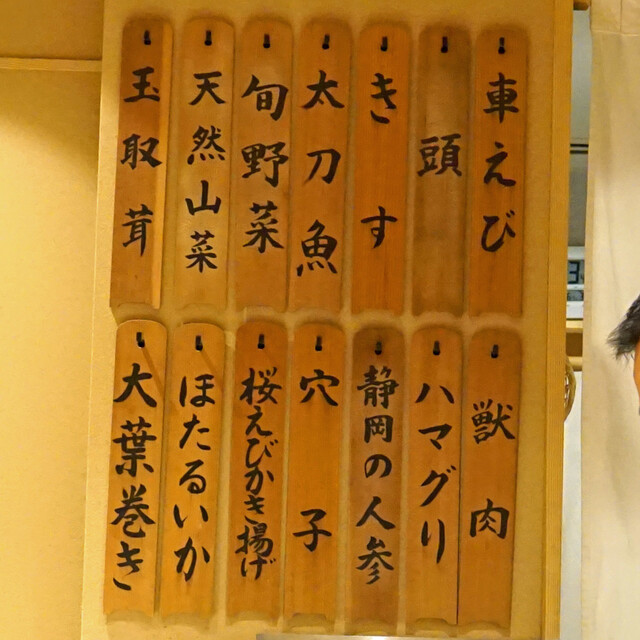 車えび
頭
きす
太刀魚
旬野菜
天然山菜
玉取茸
獣肉
ハマグリ
静岡の人参
穴子
桜えびかき揚げ
ほたるいか
大葉巻き
3